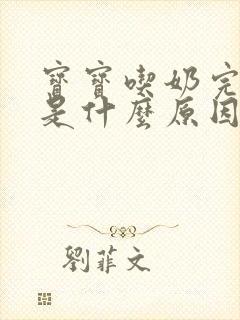 寶寶喫奶完
是什麼原因
劉菲文